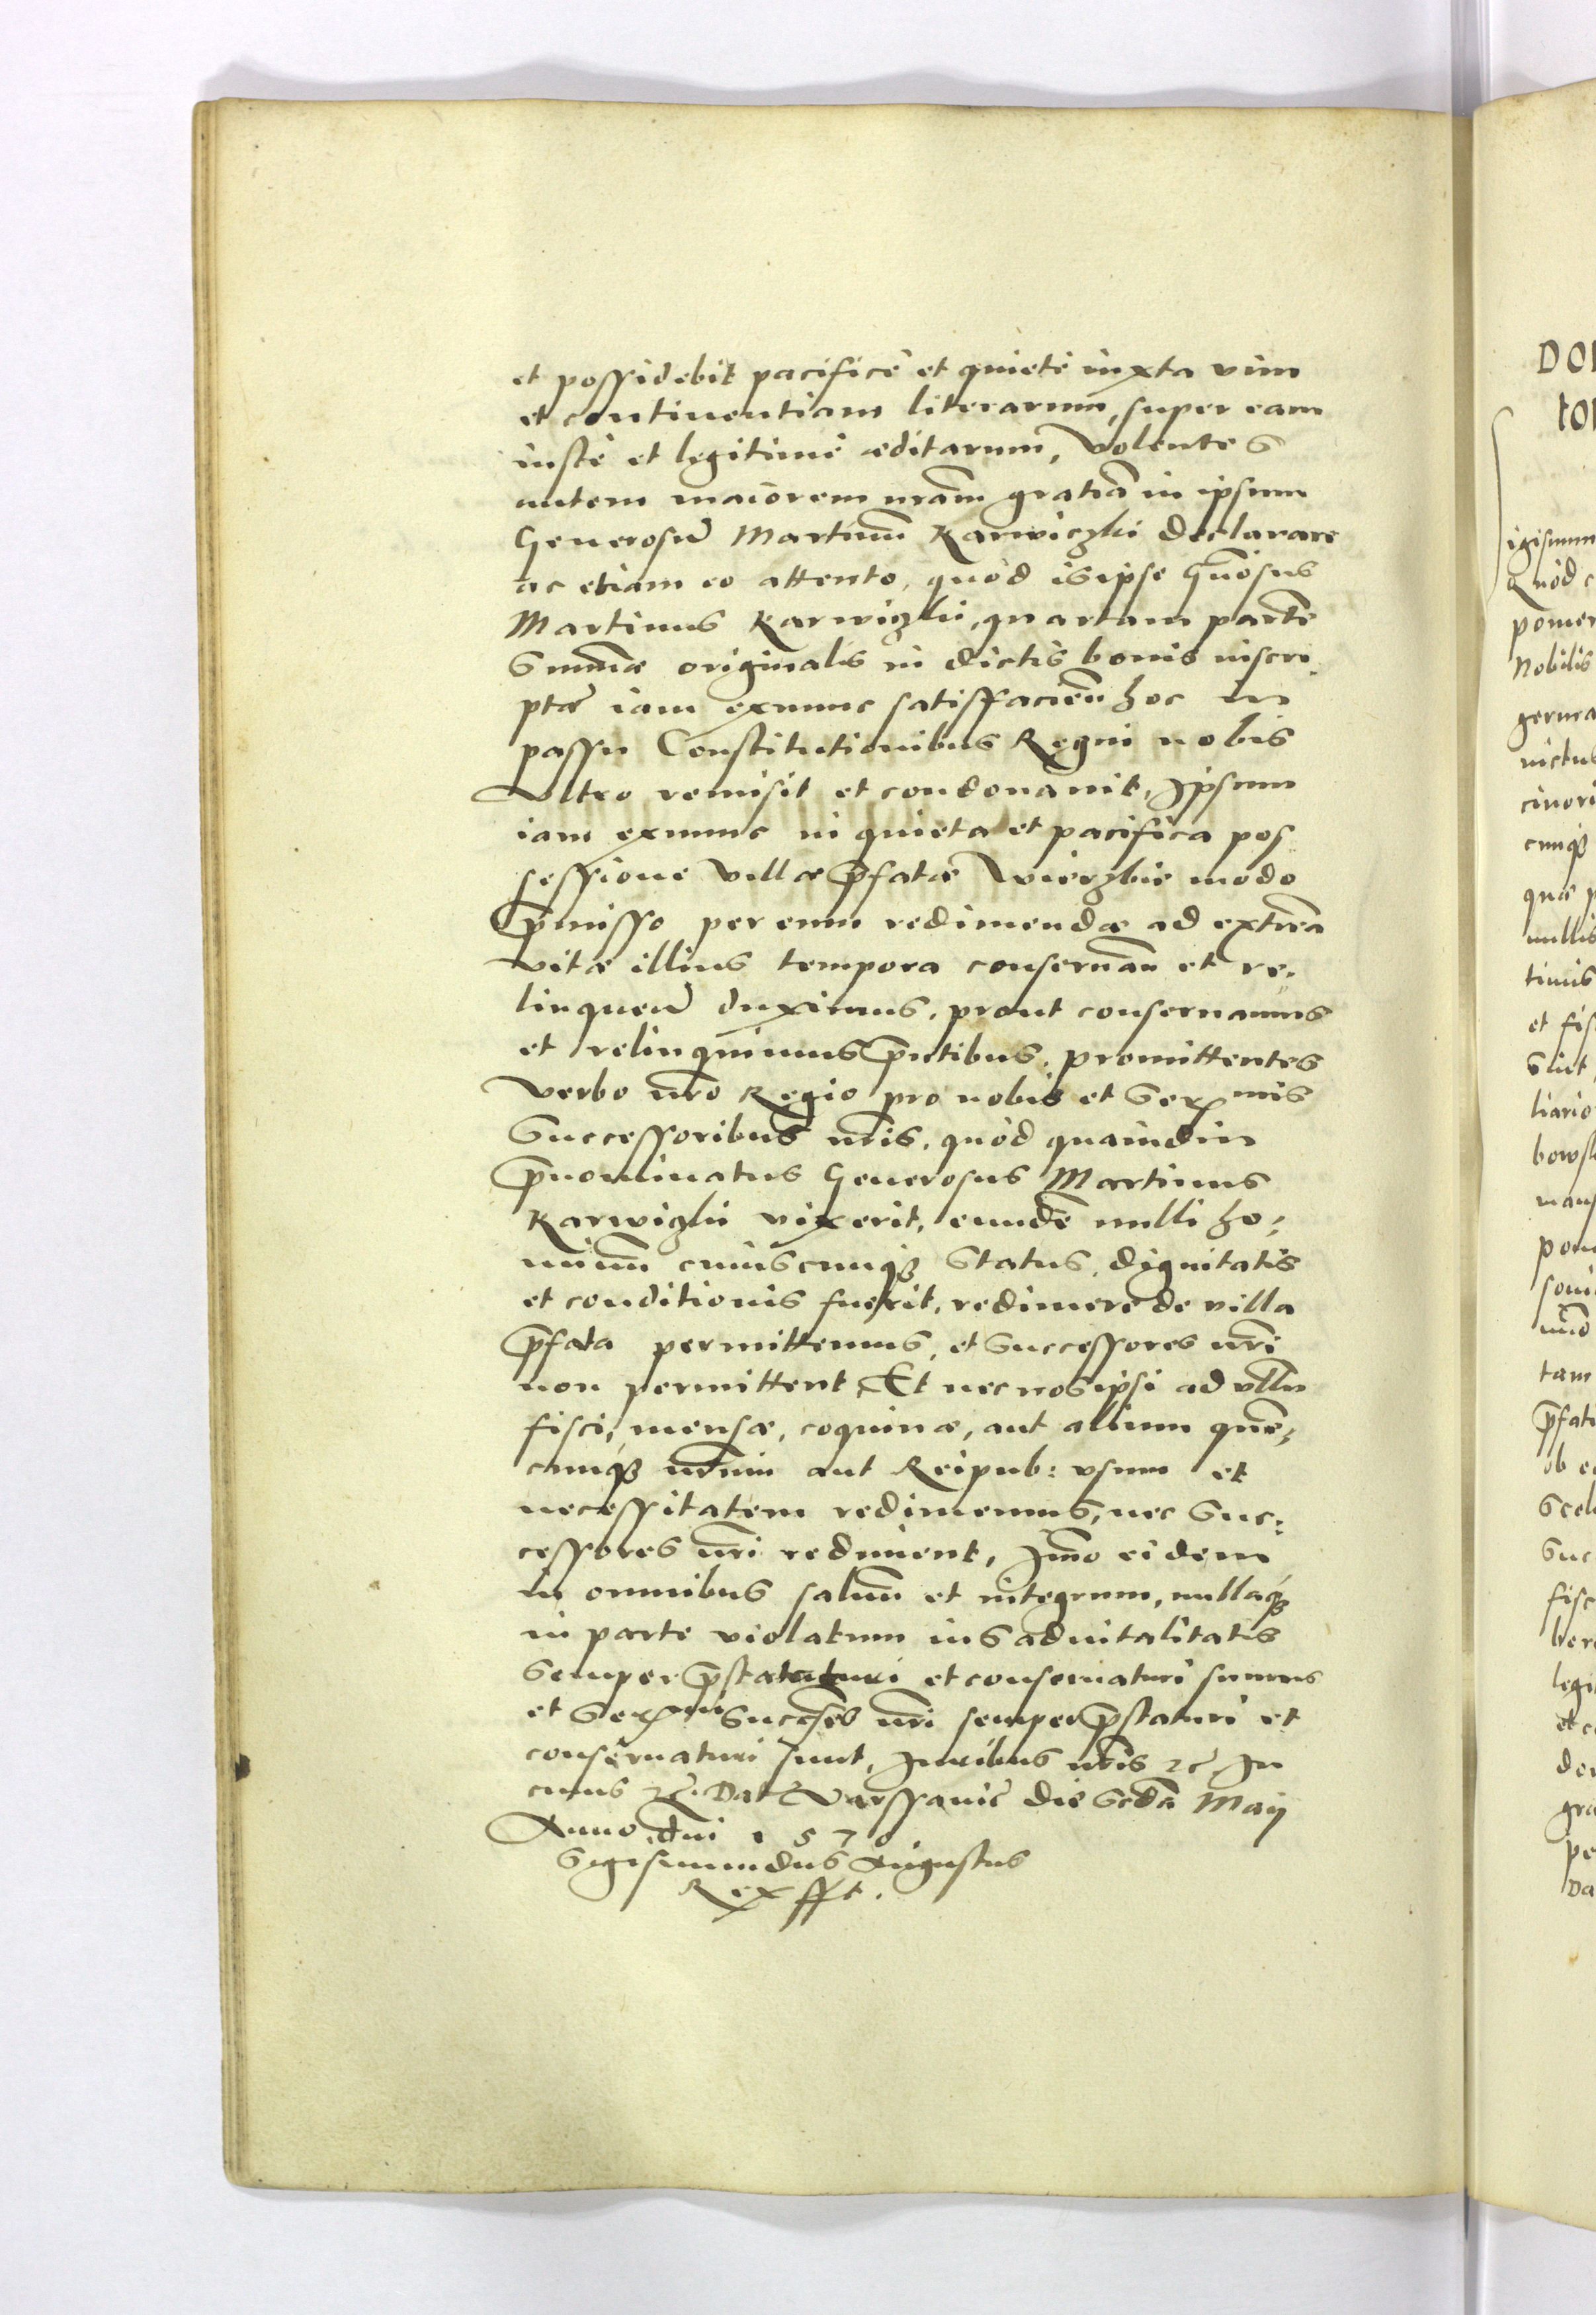 et possidebit pacificè et quietè iuxta vim
et continentiam literarum, super eam
iustè et legitimè æditarum, Volentes
autem maiorem nram̃ gratiã in ipsum
Generosũ Martinũ Karwiczki declarare
ac etiam eo attento, quòd is ipse Gnõsus
Martinus Karwiczki, quartam partẽ
Summæ originalis in dictis bonis inscri-
ptæ iam exnunc satisfacieñ hoc in
passu Constitutionibus Regni nobis
Vltro remisit et condonauit, Ipsum
iam exnunc in quieta et pacifica pos
sessione Villæ p̃fatæ Wierzbie modo
p̃misso per eum redimendæ ad extrẽa
vitæ illius tempora conseruañ et re-
linqueñ duximus, prout conseruamus
et relinquimus p̃ntibus, promittentes
Verbo nrõ Regio pro nobis et Ser mis
Successoribus nrĩs, quòd quamdiu
p̃nominatus Generosus Martinus
Karwiczki vixerit, eundẽ nulli ho-
minũ cuiuscunq; Status, dignitatis
et conditionis fuerit, redimere de villa
p̃fata permittemus, et Successores nrĩ
non permittent, Et nec nos ipsi ad vllũ
fisci, mensæ, coquinæ, aut alium quẽ-
cunq; nrũm aut Reipub: vsum et
necessitatem redimemus, nec Suc-
cessores nrĩ rediment, Imõ eidem
in omnibus saluũ et integrum, nullaq;
in parte violatum ius aduitalitatis
Semper p̃staturi et conseruaturi sumus
et Ser mi Succẽs nrĩ semper p̃staturi et
conseruaturi sunt, Iuribus nrĩs zc̃ In
cuius zc̃. Dat̃ Varssauiæ die Scdã Maij
Anno dñi 1570
Sigismundus Augustus
Rex sst.
DO
to
igismun
Quòd c
pomer
Nobilis
germa
uictus
cinori
cunq;
quæ p
nullis
timis
et fis
liario
tam
p̃fati
ob e
Scel
Suc
fisc
ber
legi
et c
gra
pe
Da